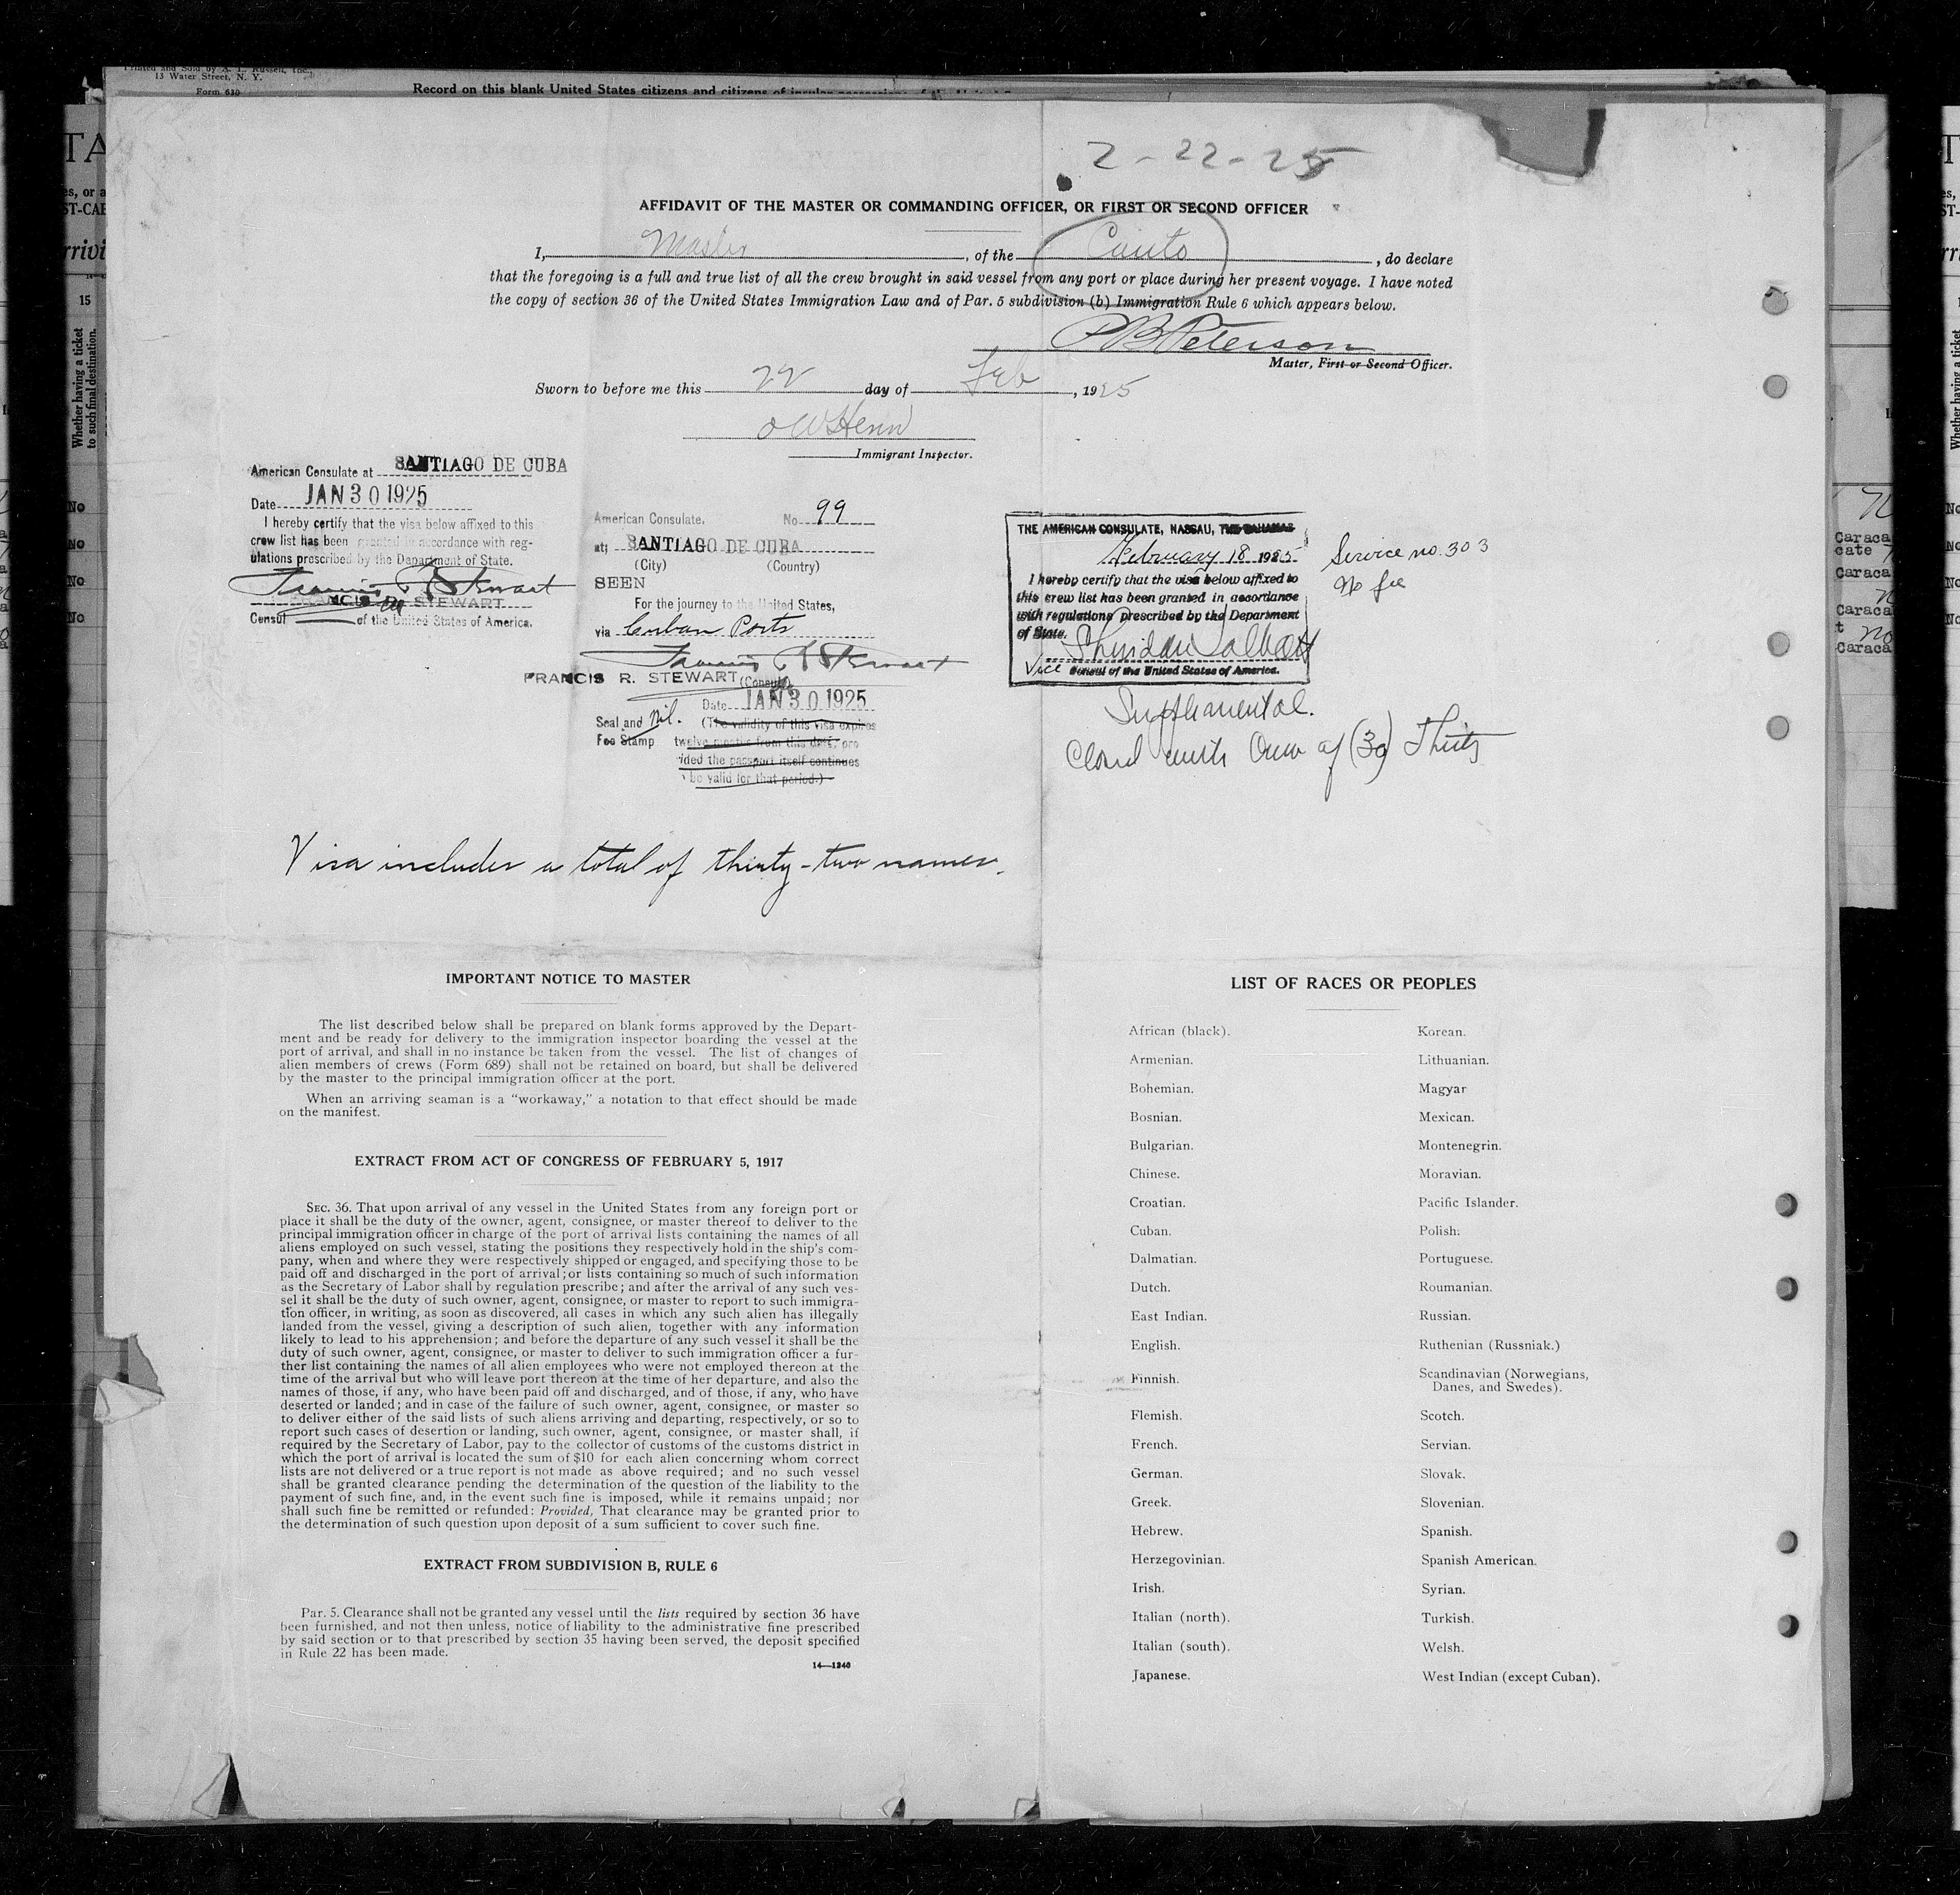 Printed and Sold by
13 Water Street, N. Y.
Form 630
Record on this blank United States citizens and citizens of insular possessions of the United
2-22-25
AFFIDAVIT OF THE MASTER OR COMMANDING OFFICER, OR FIRST OR SECOND OFFICER
I, Master, of the Cauto, do declare
that the foregoing is a full and true list of all the crew brought in said vessel from any port or place during her present voyage. I have noted
the copy of section 36 of the United States Immigration Law and of Par. 5 subdivision (b) Immigration Rule 6 which appears below.
P B Peterson
Master, First or Second Officer.
Sworn to before me this 22 day of Feb, 1925
Immigrant Inspector.
American Consulate at SANTIAGO DE CUBA
Date JAN 30 1925
I hereby certify that the visa below affixed to this
crew list has been granted in accordance with reg-
ulations prescribed by the Department of State.
Francis R Stewart
FRANCIS R. STEWART
Consul of the United States of America.
American Consulate. No 99
at SANTIAGO DE CUBA
(City) (Country)
SEEN
For the journey to the United States,
via Cuban Ports
Francis R Stewart
FRANCIS R. STEWART (Consul)
Date JAN 30 1925
Seal and Nil. (The validity of this visa expires
Fee Stamp twelve months from this date, pro
vided the passport itself continues
be valid for that period.)
THE AMERICAN CONSULATE, NASSAU, THE BAHAMAS
February 18 1925
I hereby certify that the visa below affixed to
this crew list has been granted in accordance
with regulations prescribed by the Department
of State.
Sheridan Talbott
Vice Consul of the United States of America.
Service no. 303
No fee
Supplemental.
Closed with Crew of (30) Thirty
Visa includes a total of thirty-two names.
IMPORTANT NOTICE TO MASTER
The list described below shall be prepared on blank forms approved by the Depart-
ment and be ready for delivery to the immigration inspector boarding the vessel at the
port of arrival, and shall in no instance be taken from the vessel. The list of changes of
alien members of crews (Form 689) shall not be retained on board, but shall be delivered
by the master to the principal immigration officer at the port.
When an arriving seaman is a "workaway," a notation to that effect should be made
on the manifest.
EXTRACT FROM ACT OF CONGRESS OF FEBRUARY 5, 1917
SEC. 36. That upon arrival of any vessel in the United States from any foreign port or
place it shall be the duty of the owner, agent, consignee, or master thereof to deliver to the
principal immigration officer in charge of the port of arrival lists containing the names of all
aliens employed on such vessel, stating the positions they respectively hold in the ship's com-
pany, when and where they were respectively shipped or engaged, and specifying those to be
paid off and discharged in the port of arrival; or lists containing so much of such information
as the Secretary of Labor shall by regulation prescribe; and after the arrival of any such ves-
sel it shall be the duty of such owner, agent, consignee, or master to report to such immigra-
tion officer, in writing, as soon as discovered, all cases in which any such alien has illegally
landed from the vessel, giving a description of such alien, together with any information
likely to lead to his apprehension; and before the departure of any such vessel it shall be the
duty of such owner, agent, consignee, or master to deliver to such immigration officer a fur-
ther list containing the names of all alien employees who were not employed thereon at the
time of the arrival but who will leave port thereon at the time of her departure, and also the
names of those, if any, who have been paid off and discharged, and of those, if any, who have
deserted or landed; and in case of the failure of such owner, agent, consignee, or master so
to deliver either of the said lists of such aliens arriving and departing, respectively, or so to
report such cases of desertion or landing, such owner, agent, consignee, or master shall, if
required by the Secretary of Labor, pay to the collector of customs of the customs district in
which the port of arrival is located the sum of $10 for each alien concerning whom correct
lists are not delivered or a true report is not made as above required; and no such vessel
shall be granted clearance pending the determination of the question of the liability to the
payment of such fine, and, in the event such fine is imposed, while it remains unpaid; nor
shall such fine be remitted or refunded: Provided, That clearance may be granted prior to
the determination of such question upon deposit of a sum sufficient to cover such fine.
EXTRACT FROM SUBDIVISION B, RULE 6
Par. 5. Clearance shall not be granted any vessel until the lists required by section 36 have
been furnished, and not then unless, notice of liability to the administrative fine prescribed
by said section or to that prescribed by section 35 having been served, the deposit specified
in Rule 22 has been made.
14—1240
LIST OF RACES OR PEOPLES
African (black).
Armenian.
Bohemian.
Bosnian.
Bulgarian.
Chinese.
Croatian.
Cuban.
Dalmatian.
Dutch.
East Indian.
English.
Finnish.
Flemish.
French.
German.
Greek.
Hebrew.
Herzegovinian.
Irish.
Italian (north).
Italian (south).
Japanese.
Korean.
Lithuanian.
Magyar
Mexican.
Montenegrin.
Moravian.
Pacific Islander.
Polish.
Portuguese.
Roumanian.
Russian.
Ruthenian (Russniak.)
Scandinavian (Norwegians,
Danes, and Swedes).
Scotch.
Servian.
Slovak.
Slovenian.
Spanish.
Spanish American.
Syrian.
Turkish.
Welsh.
West Indian (except Cuban).
15
Whether having a ticket
to such final destination.
No
No
No
No
Caraca
cate
Caraca
Caraca
t
Caraca